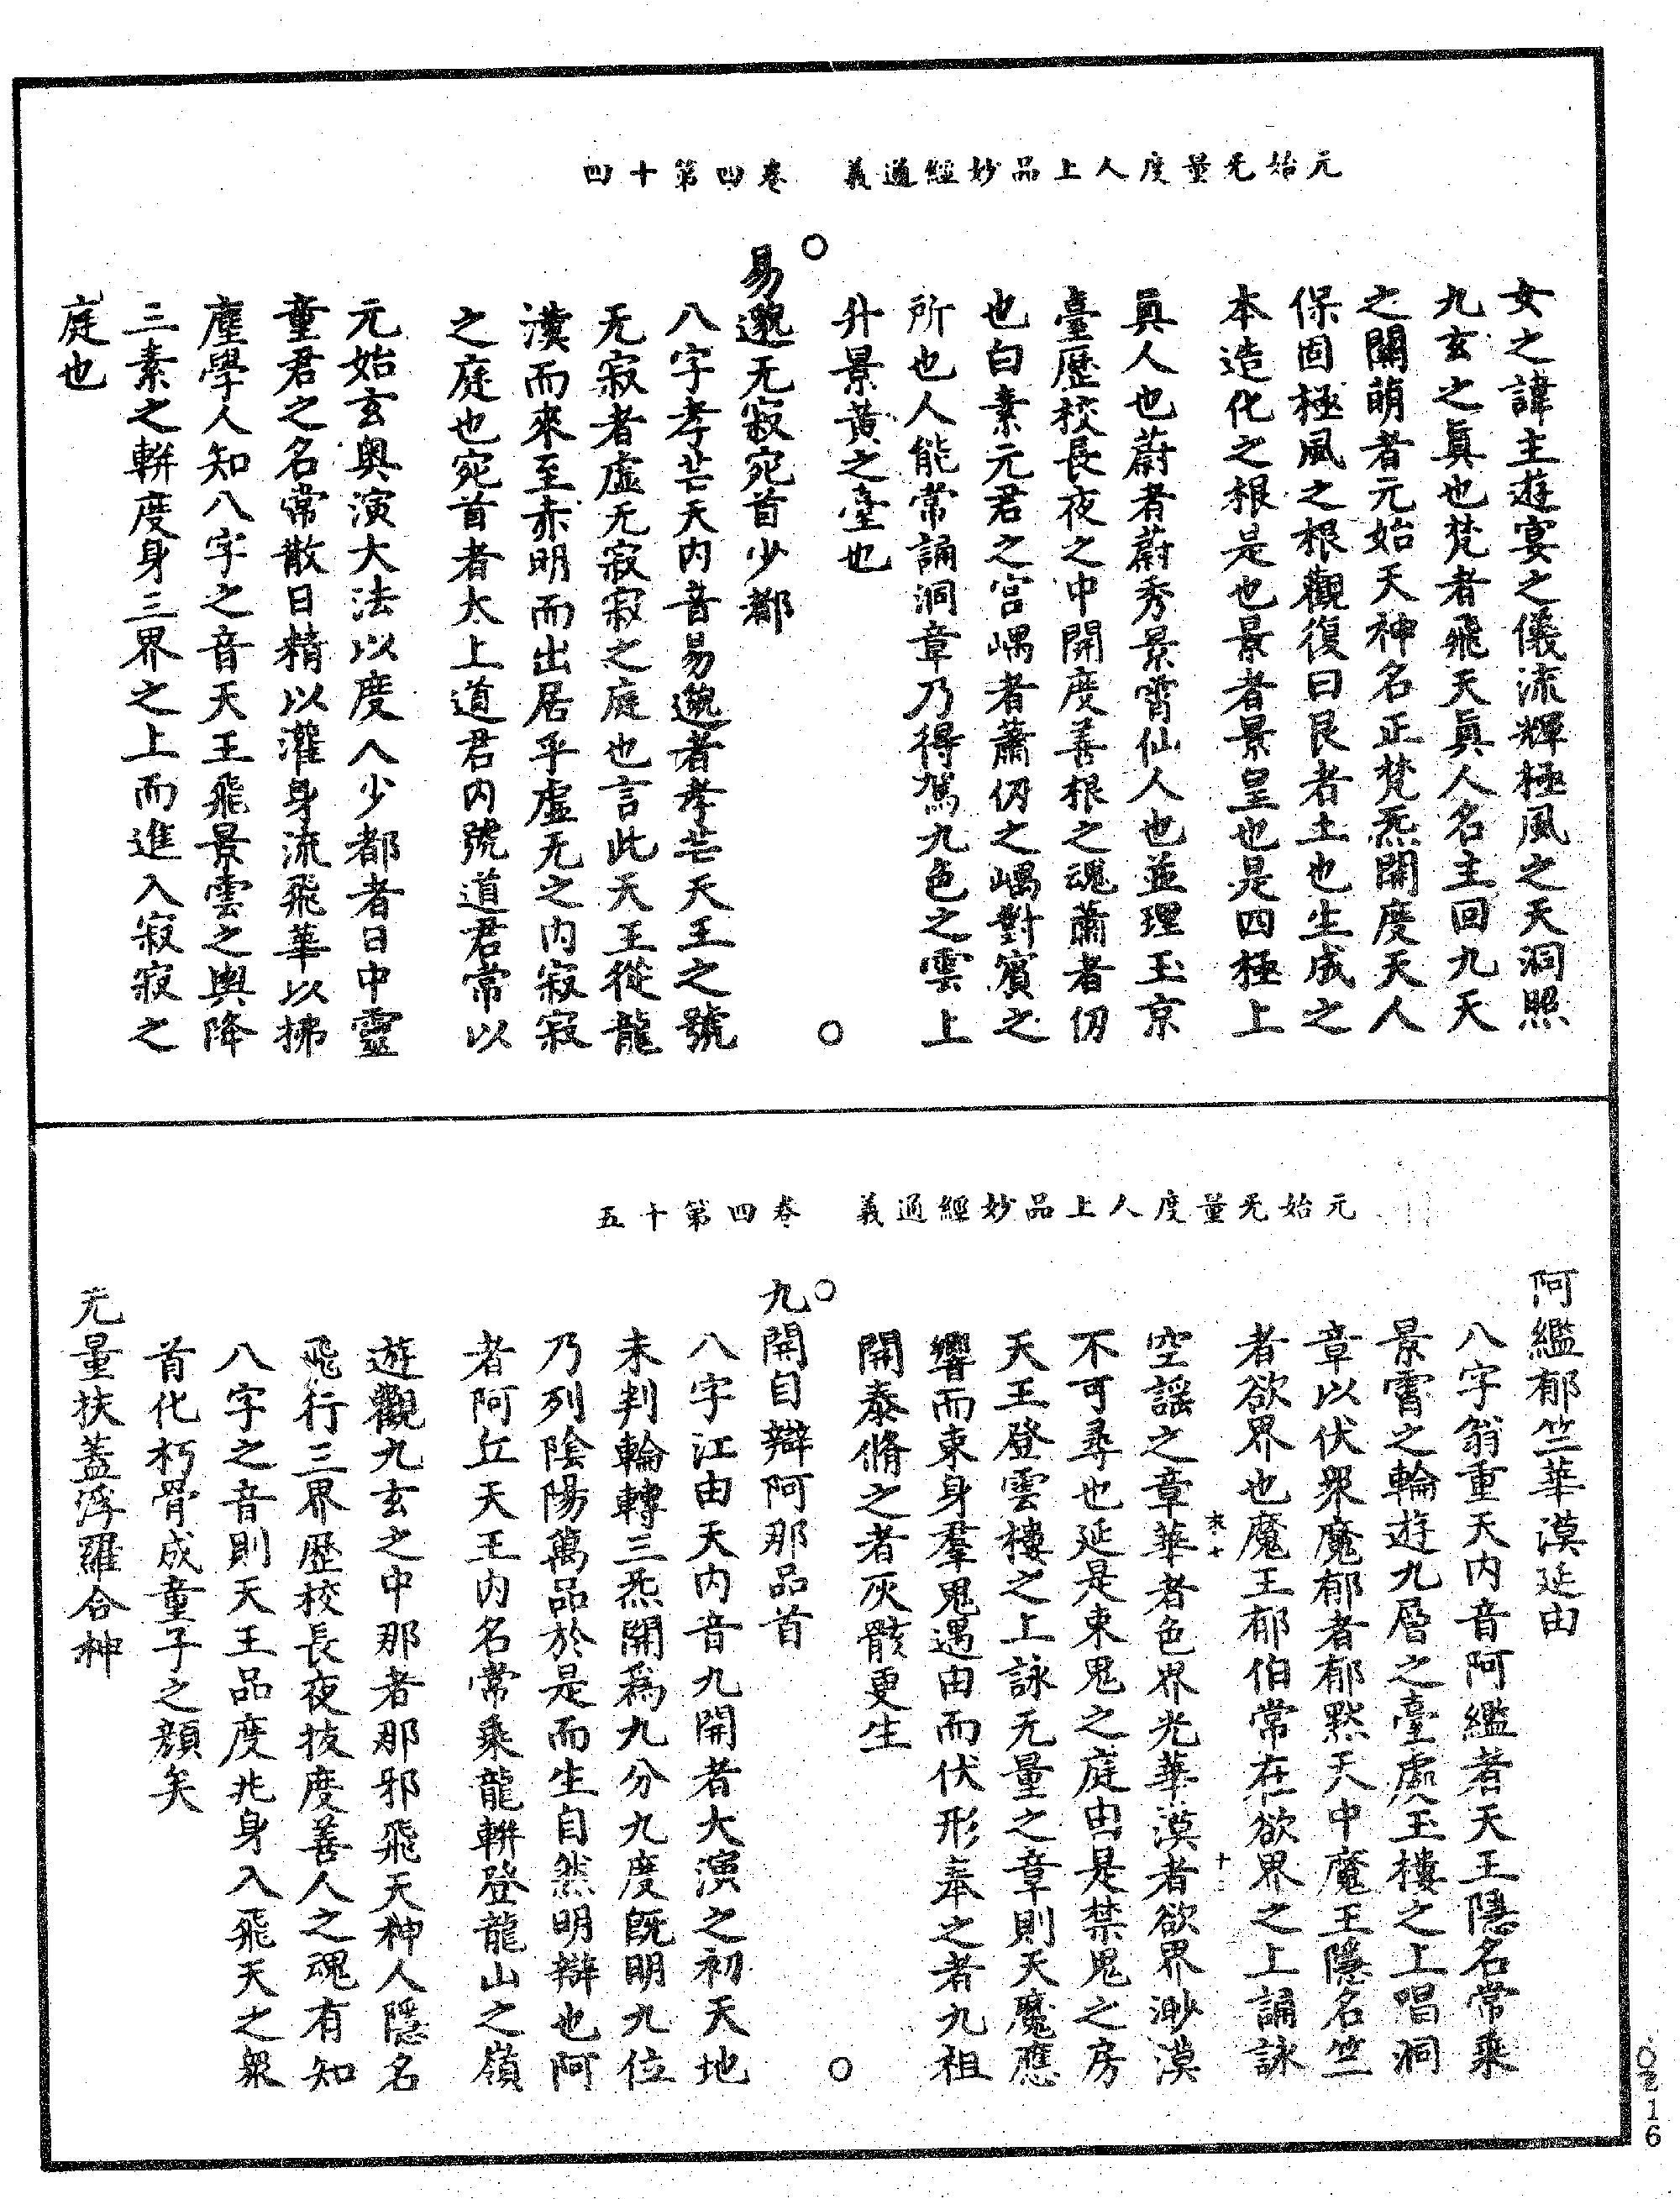 元始无量度人上品妙經通義　卷四第十四
女之諱主遊宴之儀流輝極風之天洞照
九玄之眞也梵者飛天眞人名主回九天
之關萌者元始天神名正梵炁開度天人
保固極風之根觀復曰艮者土也生成之
本造化之根是也景者景皇也是四極上
眞人也蔚者蔚秀景霄仙人也並理玉京
臺歷校長夜之中開度善根之魂蕭者仞
也白素元君之宮嵎者蕭仞之嵎對賓之
所也人能常誦洞章乃得駕九色之雲上
升景黃之臺也
○　○
易邈无寂宛首少都
八字孝芒天內音易邈者孝芒天王之號
无寂者虛无寂寂之庭也言此天王從龍
漢而來至赤明而出居乎虛无之內寂寂
之庭也宛首者太上道君內號道君常以
元始玄奥演大法以度人少都者日中靈
童君之名常散日精以灌身流飛華以拂
塵學人知八字之音天王飛景雲之輿降
三素之軿度身三界之上而進入寂寂之
庭也
元始无量度人上品妙經通義　卷四第十五
阿緼郁竺華漠延由
八字翁重天內音阿緼者天王隱名常乘
景霄之輪遊九層之臺處玉樓之上唱洞
章以伏眾魔郁者郁黙天中魔王隱名竺
者欲界也魔王郁伯常在欲界之上誦詠
空謡之章華者色界光華漠者欲界渺漠
不可尋也延是東鬼之庭由是禁鬼之房
天王登雲樓之上詠无量之章則天魔應
響而束身羣鬼遇由而伏形奉之者九祖
開泰脩之者灰骸更生
○　○
九開自辯阿那品首
八字江由天內音九開者大演之初天地
未判輪轉三炁開爲九分九度既明九位
乃列陰陽萬品於是而生自然明辯也阿
者阿丘天王內名常乘龍軿登龍山之嶺
遊觀九玄之中那者那邪飛天神人隱名
飛行三界歷校長夜拔度善人之魂有知
八字之音則天王品度兆身入飛天之衆
首化朽骨成童子之顏矣
无量扶蓋浮羅合神